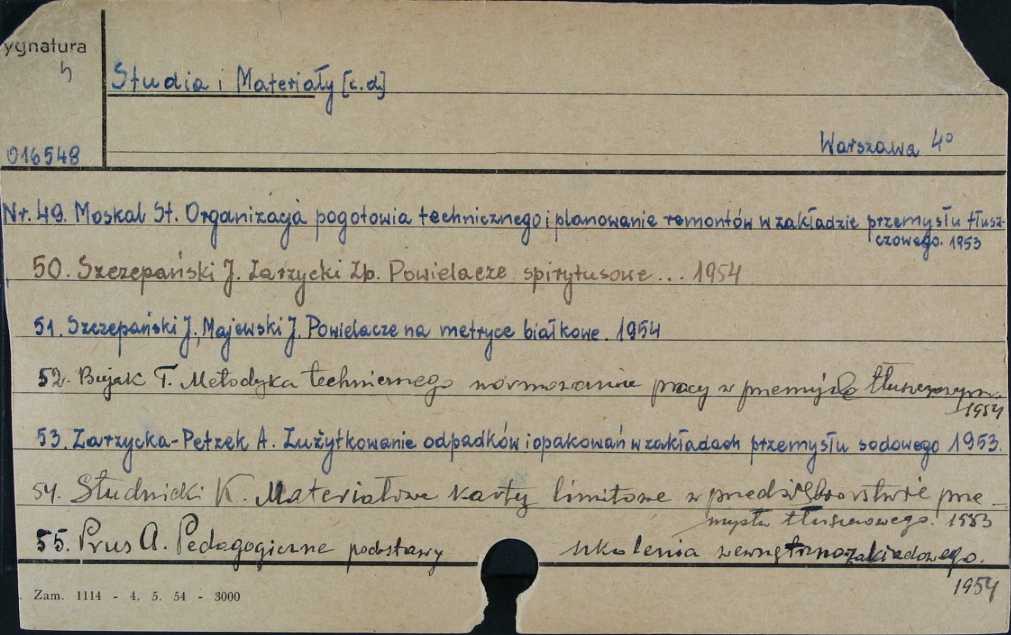 ygnatura
h
Studia i Materiały [c.d]
016548
Warszawa 4°
Nr. 49. Moskal St. Organizacja pogotowia technicznego i planowanie remontów w zakładzie przemysłu tłusz-
czowego. 1953
50. Szczepański J. Zarzycki Zb. Powielacze spirytusowe... 1954
51. Szczepański J., Majewski J. Powielacze na metryce białkowe. 1954
52. Bujak T. Metodyka technicznego normowania pracy w przemyśle tłuszczowym.
1954
53. Zarzycka-Petzek A. Zużytkowanie odpadków i opakowań w zakładach przemysłu sodowego 1953.
54. Studnicki K. Materiałowe karty limitowe w przedsiębiorstwie prze-
mysłu tłuszczowego. 1953
55. Prus A. Pedagogiczne podstawy szkolenia wewnętrznozakładowego.
1954
Zam. 1114 - 4. 5. 54 - 3000